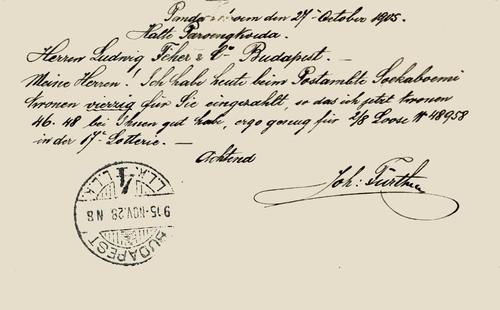 den 27ᵗ October 1905.
Halte Paroengkoeda.
Herren Ludwig Feher & Co Budapest. —
Meine Herren! Ich habe heute beim Postamte Soekaboemi
Kronen vierzig für Sie eingezahlt, so das ich jetzt Kronen
46.48 bei Ihnen gut habe, ergo genug für 2/8 Loose № 48958
in der 17ᵗ Lotterie. —
Achtend
Joh: Fürthner
915-NOV.28 N8
BUDAPEST